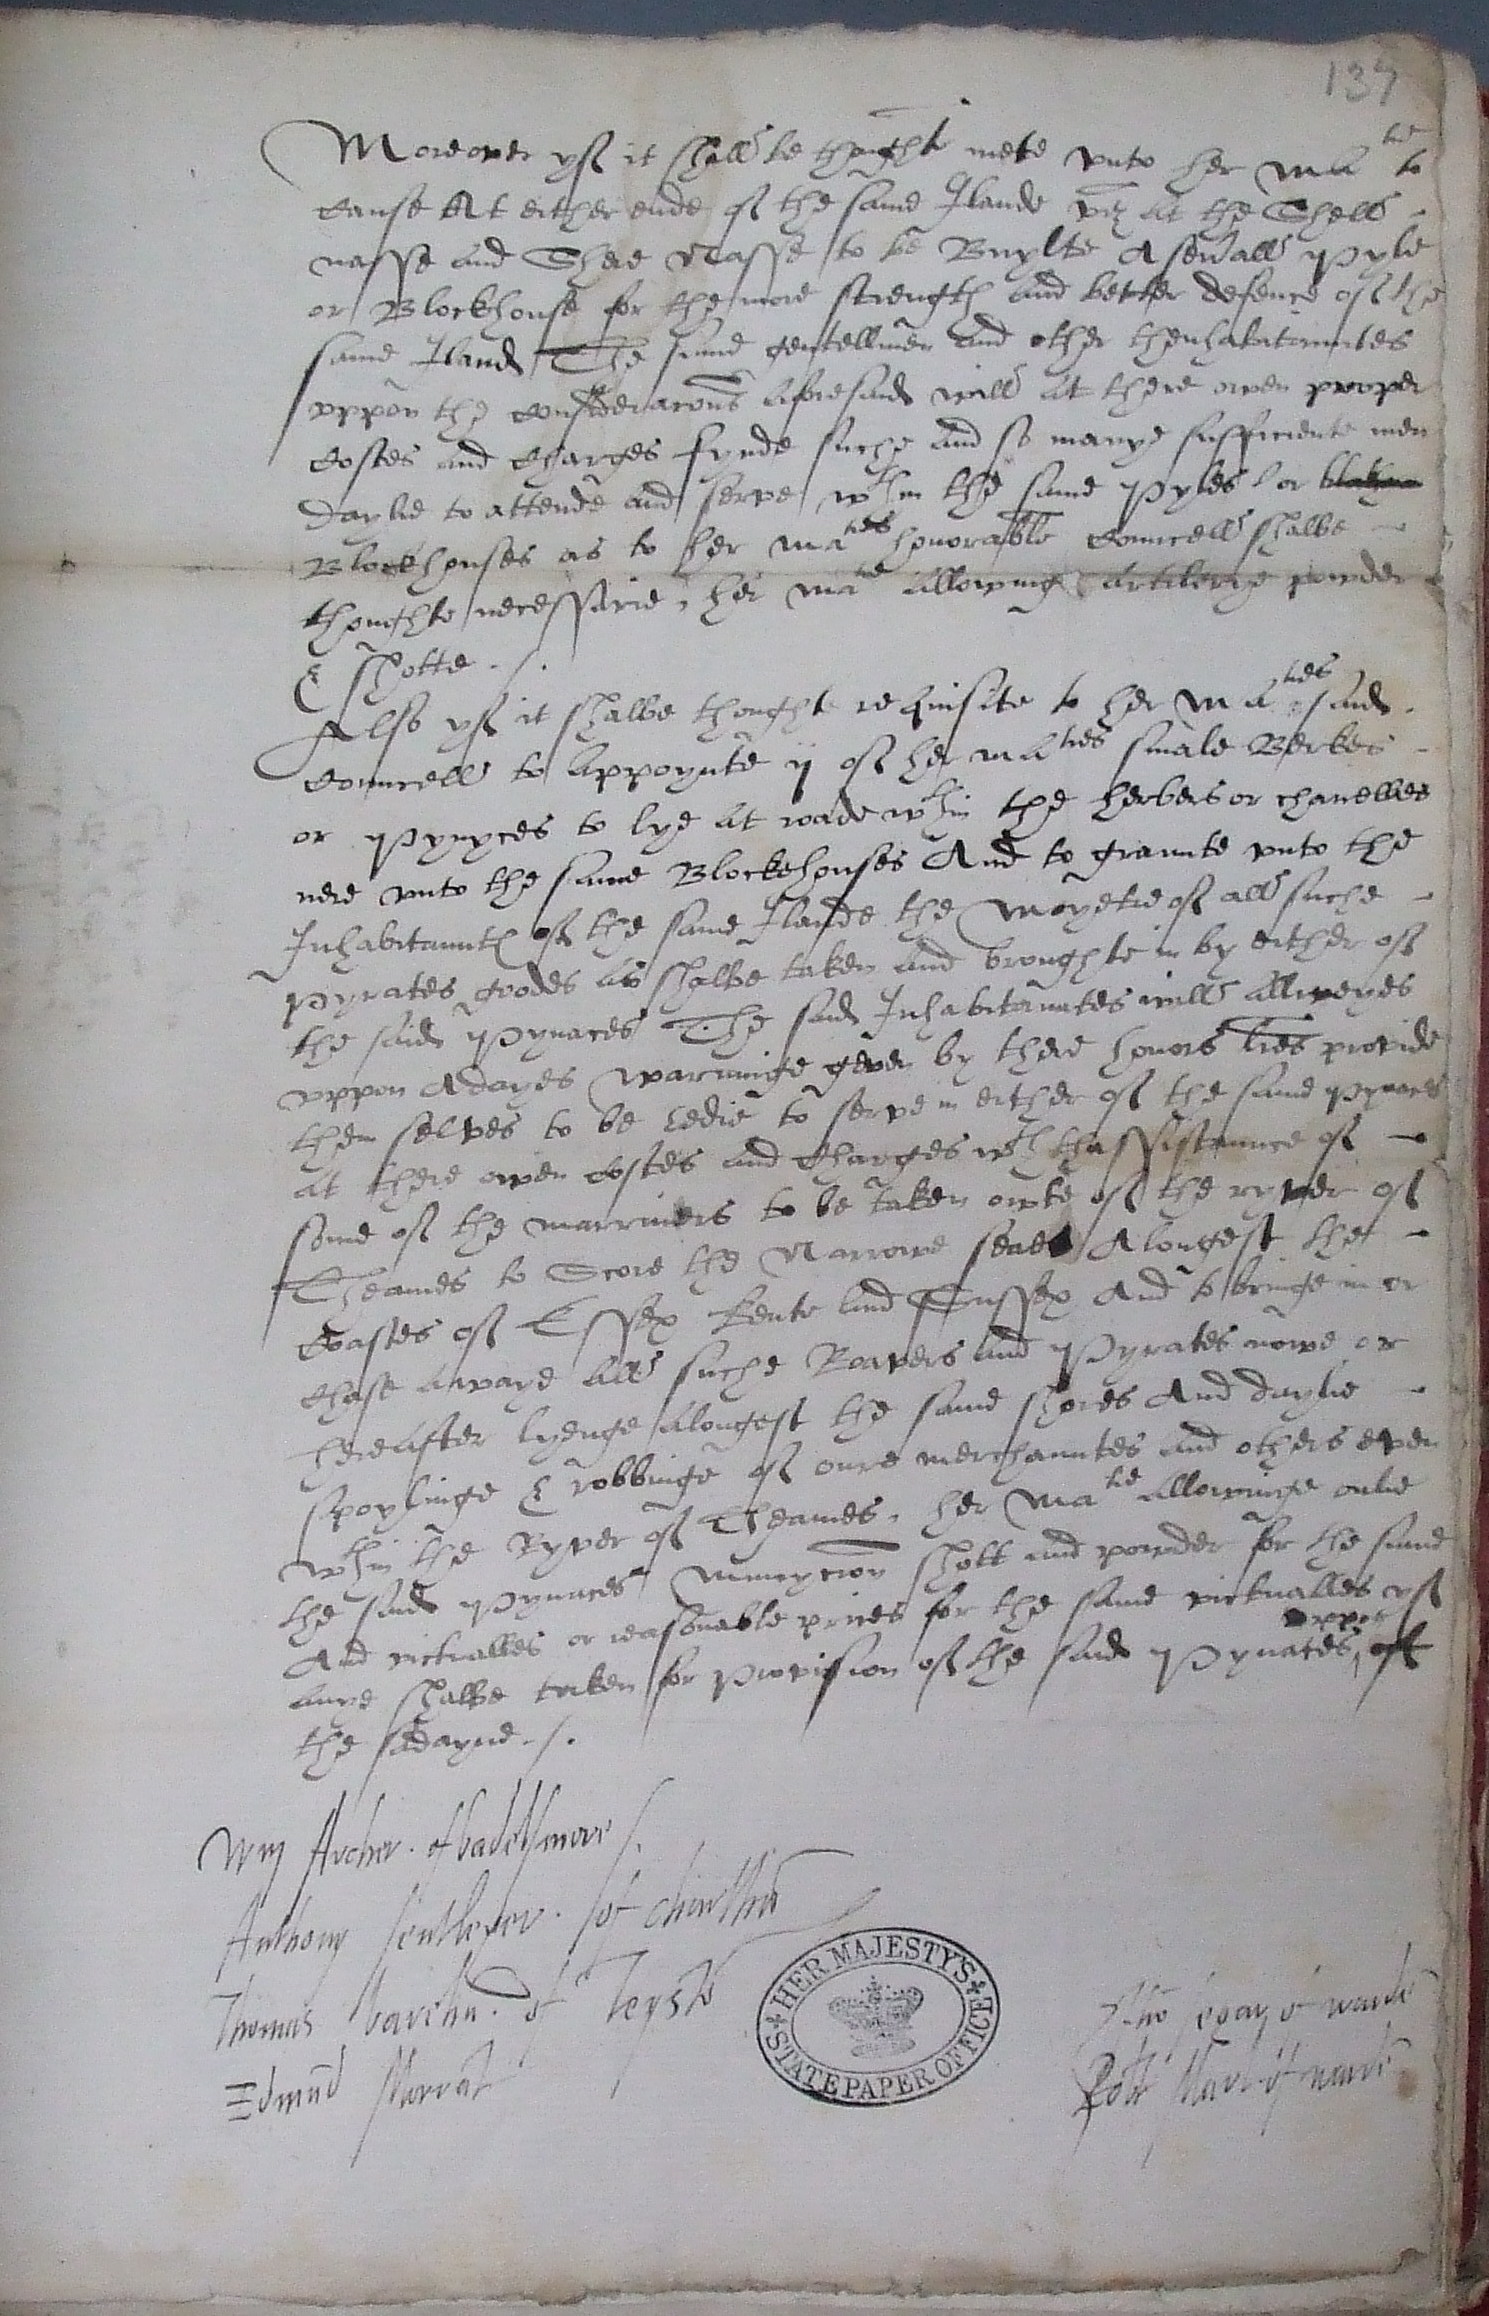 137
Moreover yf it shall be thought mete vnto her Matie to
cause At either ende of the same Ilande viz at the Shell
nasse and Shere Nasse to be Buylte A seuall pyle
or Blockhouse for the more strength and better defence of the
same Iland The same gentellmen and other thenhabitauntes
vppon the consideracons aforesaid will at there owen proper
costes and charges fynde suche and so manye sufficiente men
daylie to attende and serve wthin the same pyles or
Blockhouses as to her maties honorable councell shalbe
thoughte necessarie, her matie allowing artilerye powder
& shotte ./.
Also yf it shalbe thought requisite to her Maties said
councell to appoynte ij of her maties smale Barkes
or pynyces to lye at roade wthin the herbers or chanelles
nere vnto the same Blockehouses And to graunte vnto the
Inhabitauntes of the same Ilande the moyetie of all suche
pyrates goodes as shalbe taken and broughte in by either of
the said pynaces The said Inhabitauntes will allweyes
vppon A dayes warninge geven by there honors lres provide
them selves to be redie to serve in either of the same pynaces
at there owen costes and charges wth thassistaunce of
some of the marriners to be taken owte of the ryver of
Theames to Score the Narrowe seaes Alongest the
coastes of Essex Kente and Sussex And to bringe in or
chase awaye all suche Roavers and pyrates nowe or
hereafter lyenge alongest the same shores And daylie
spoylinge & robbinge of oure merchauntes and others even
wthin the Ryver of Theames, her Matie allowinge onlie
the said pynaces municion shott and powder for the same
And victualles or reasonable prices for the same victualles yf
anye shalbe taken for provission of the said pynaces vppon of
the sodayne ./.
Wm Archer . of badelsmere /.
Anthony sentleger . of
Thomas of Teyst
Edmund
of warde
Robt of warde
HER MAJESTY'S
STATE PAPER OFFICE